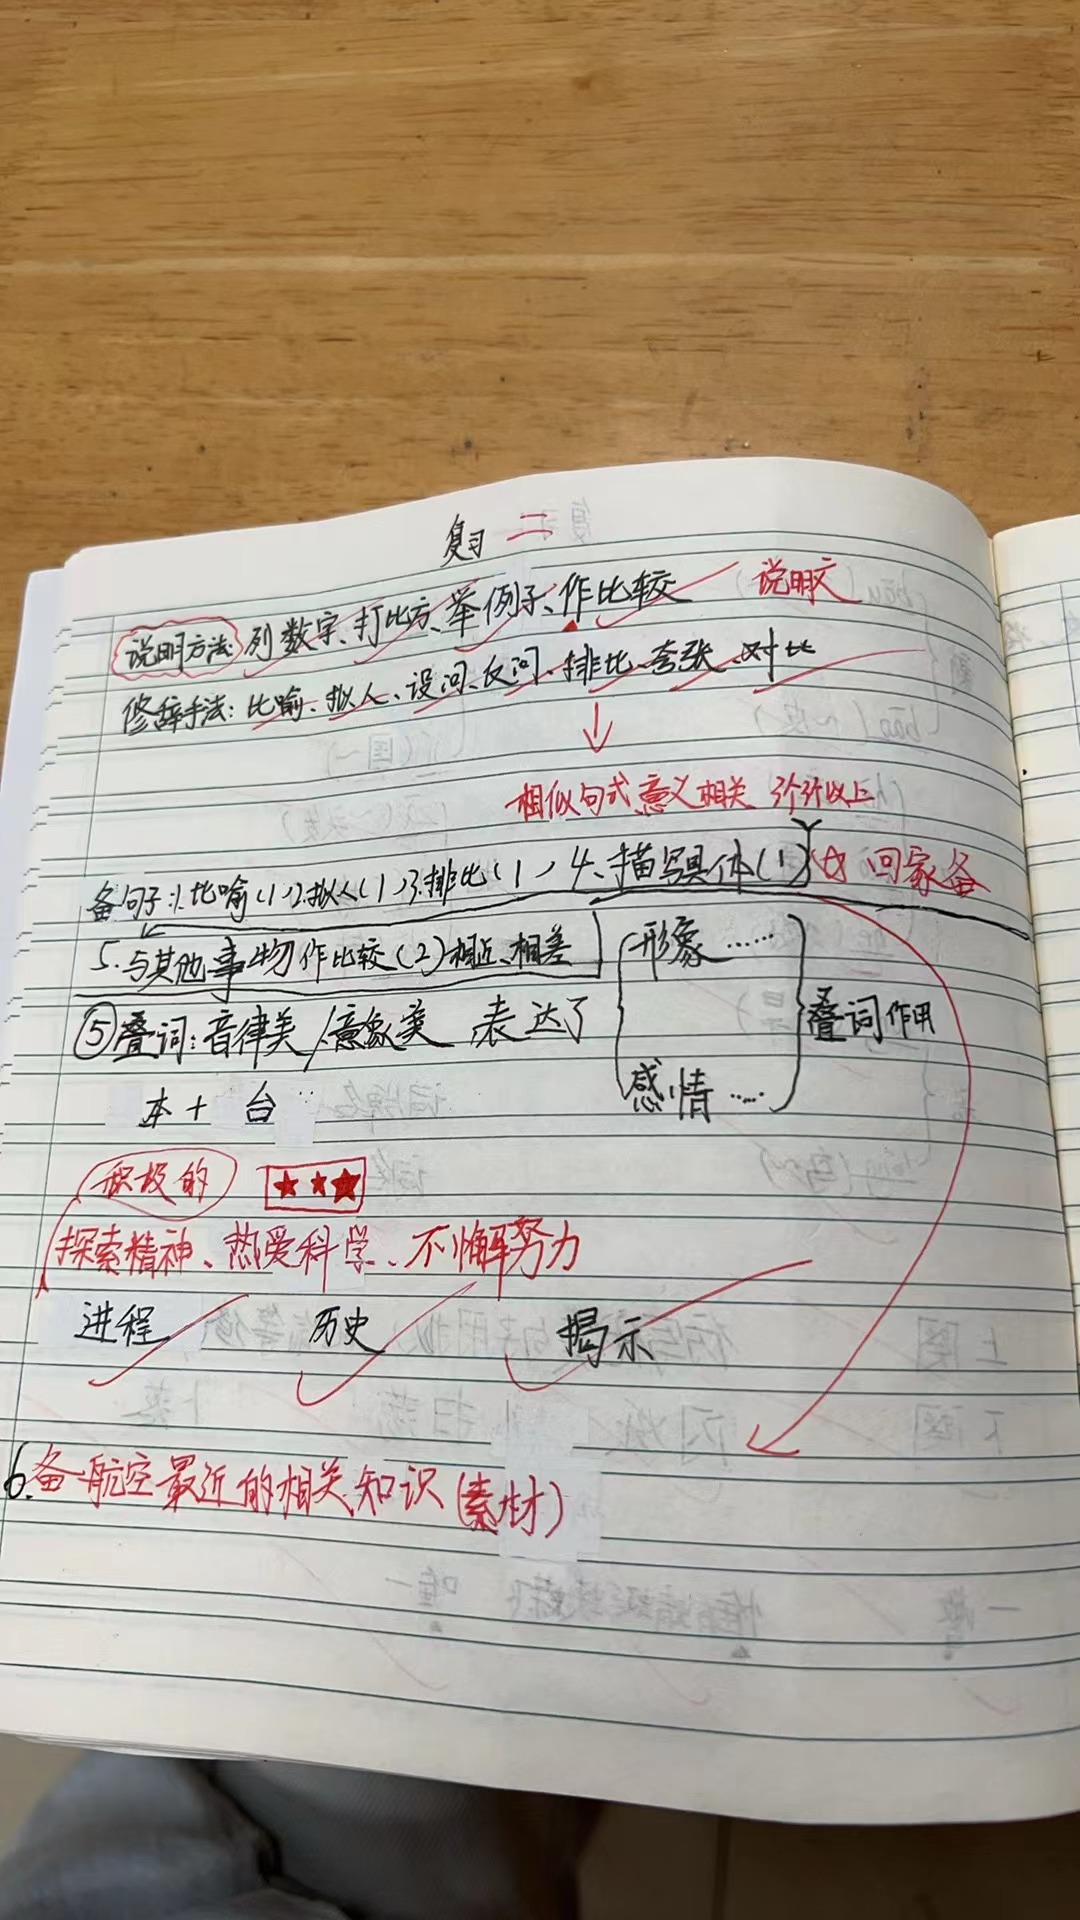 复习 二
说明方法: 列数字、打比方、举例子、作比较 说明文
修辞手法: 比喻、拟人、设问、反问、排比、夸张、对比
相似句式意义相关 3个3个以上
备句子: 1.比喻(1)2.拟人(1)3.排比(1)4.描写具体(1) 回家备
5.与其他事物作比较(2)相近、相差
形象……
⑤叠词:音律美/意象美 表达了
叠词作用
感情……
本+台
积极的 ★★★
探索精神、热爱科学、不懈努力
进程 历史 揭示
6.备航空最近的相关知识(素材)